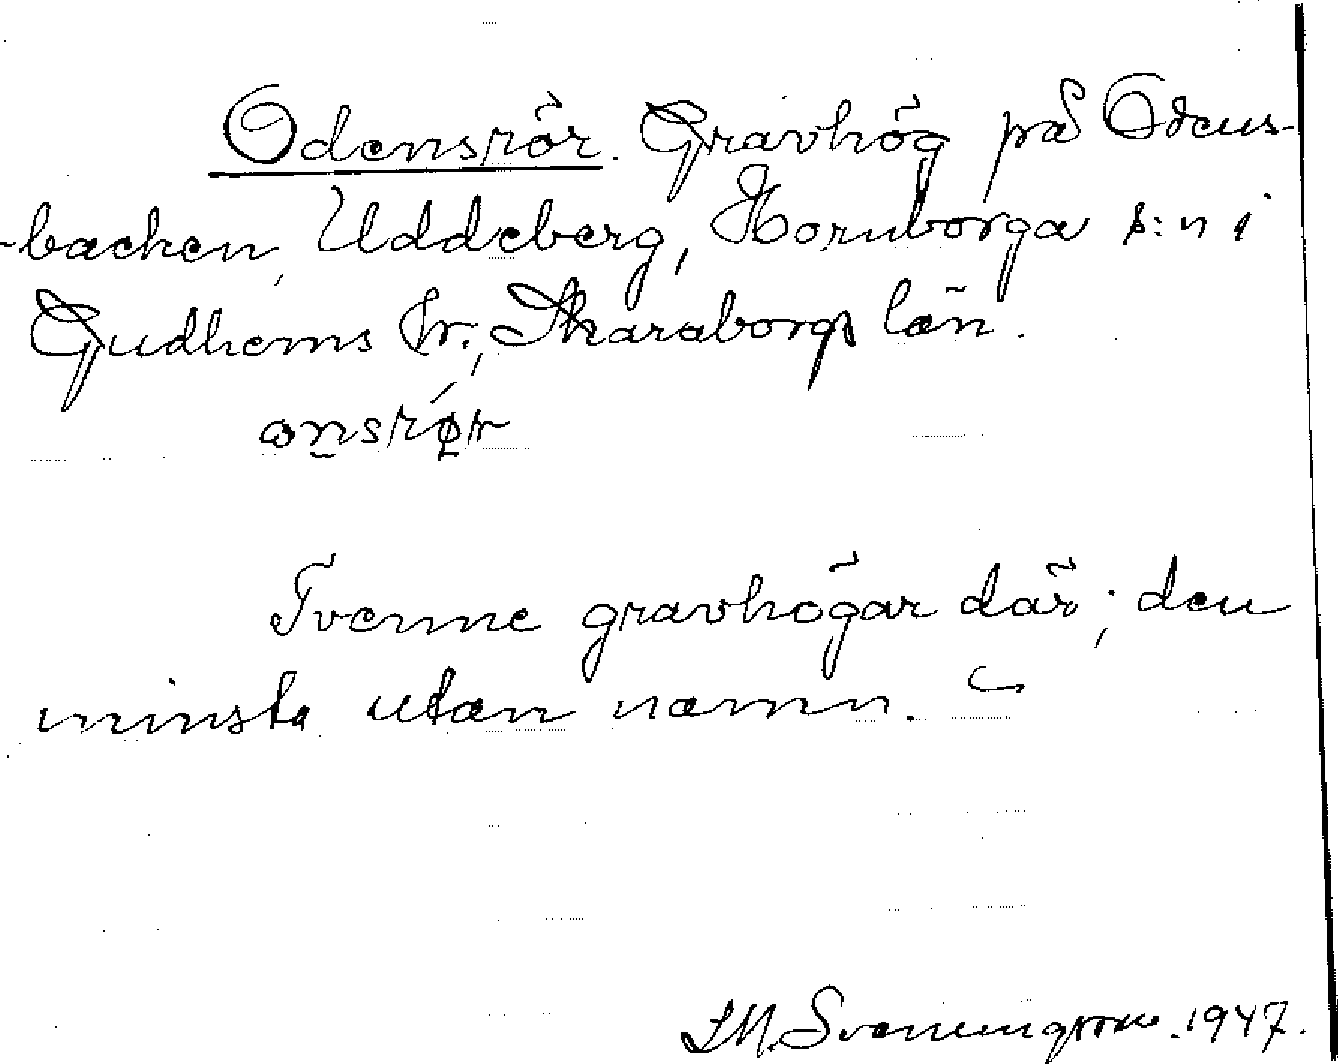 Odensrör. Gravhög på Odens-
-backen, Uddeberg, Hornborga s:n i
Gudhems hr., Skaraborgs län.
Tvenne gravhögar där; den
minsta utan namn.
S.M. Svenungsson. 1947.